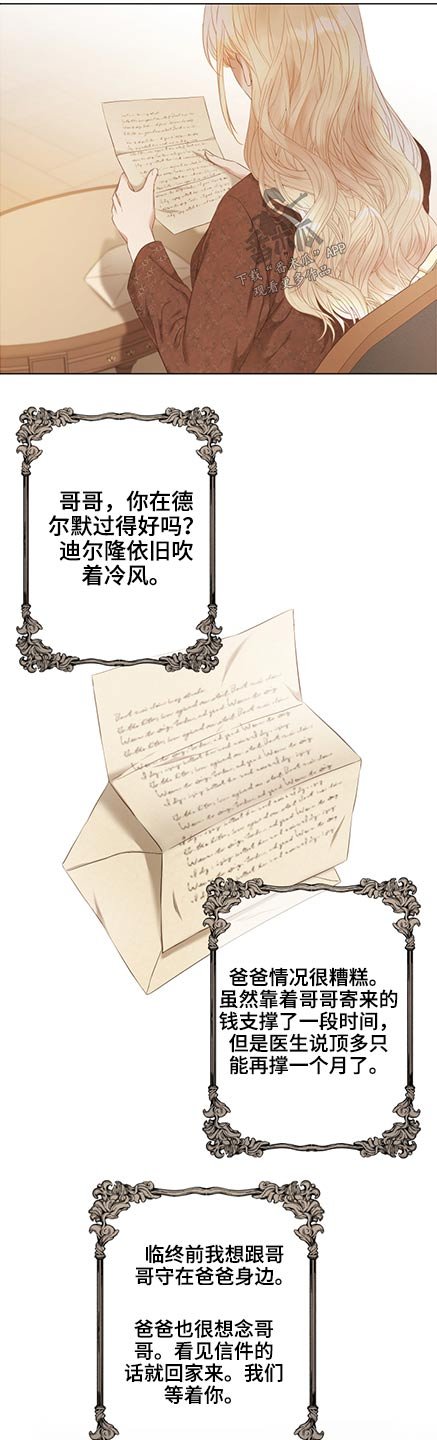 番木瓜
下载“番木瓜”APP
观看更多作品
哥哥，你在德
尔默过得好吗？
迪尔隆依旧吹
着冷风。
爸爸情况很糟糕。
虽然靠着哥哥寄来的
钱支撑了一段时间，
但是医生说顶多只
能再撑一个月了。
临终前我想跟哥
哥守在爸爸身边。
爸爸也很想念哥
哥。看见信件的
话就回家来。我们
等着你。